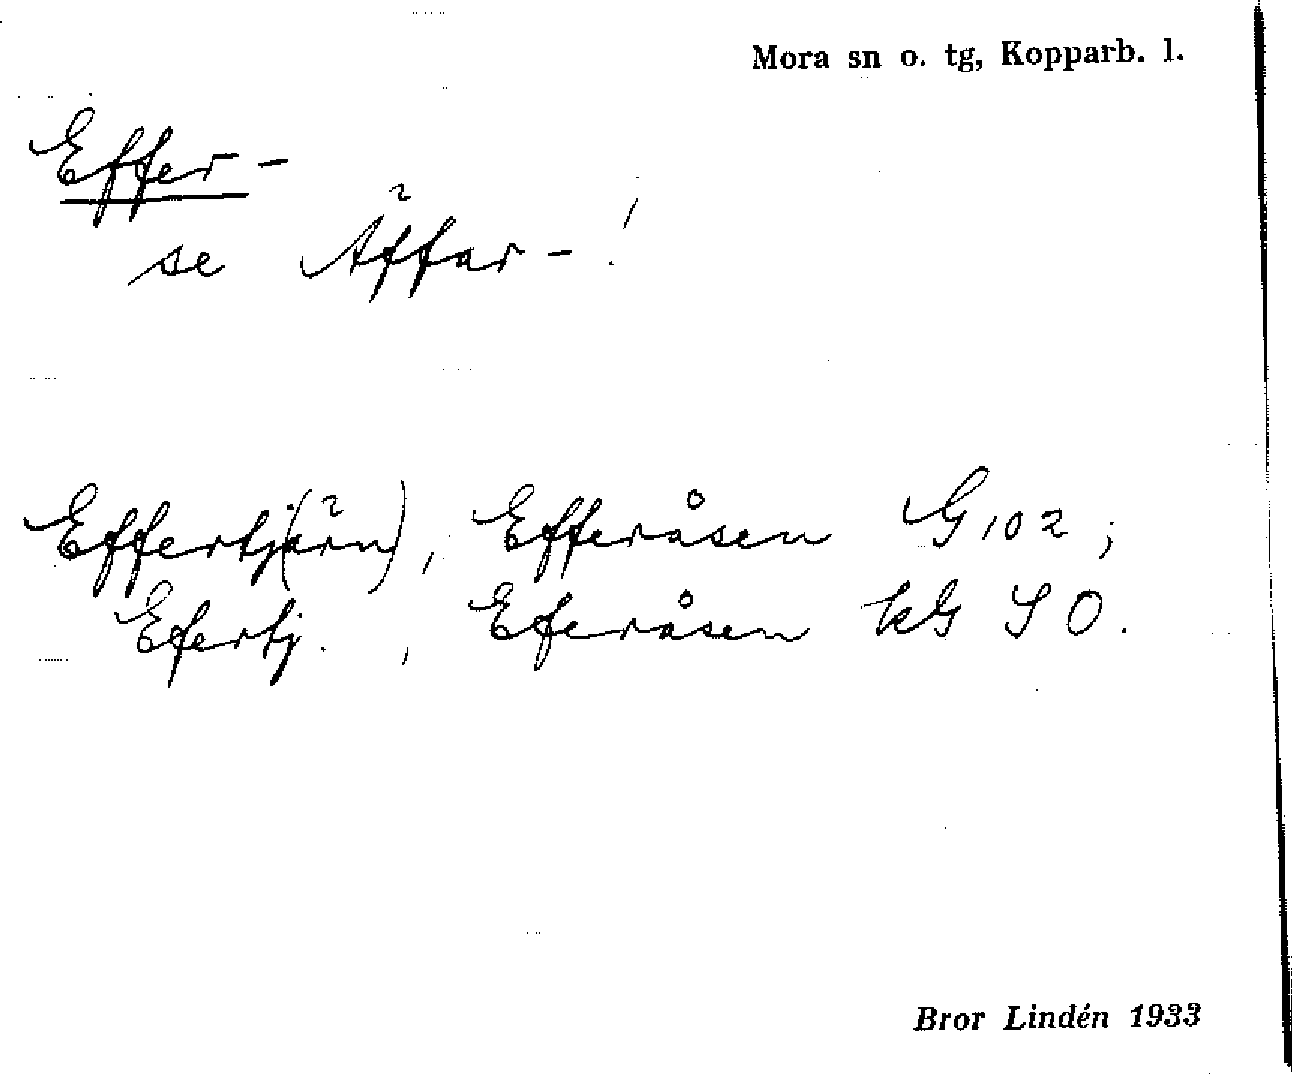 Mora sn o. tg, Kopparb. l.
Effer-
se Äffar-!
Effertj(ärn), Efferåsen G 102;
Efertj. , Eferåsen kG SO.
Bror Lindén 1933